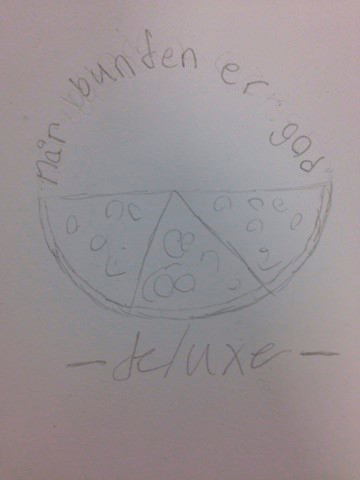 når bunden er god
- deluxe -